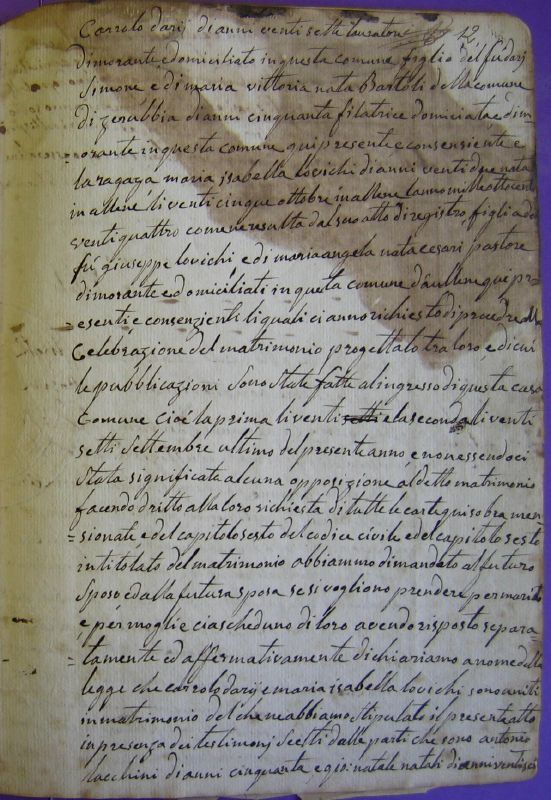 Carrolo darij di anni venti sette lauratore 12
dimorante e domiciliato in questa comune figlio del fu darij
Simone e di maria vittoria nata Bartoli della comune
di zerubbia di anni cinquanta filatrice domiciata e dim-
-orante in questa comune qui presente e consensiente e
la ragaza maria isabella lovichi di anni venti due nata
in allene li venti cinque ottobre in allene l'anno mille ottocento
venti quattro come resulta dal suo atto di registro figlia del
fù giuseppe lovichi e di maria angela nata cesari pastore
dimorante e domiciliati in questa comune d'aullene qui pr-
=esenti e consenzienti li quali ci anno richiesto di procedere alla
Celebrazione del matrimonio progettato tra loro, e di cui
le pubblicazioni sono state fatte al ingresso di questa casa
Comune cioé la prima li venti setti e la seconda li venti
setti settembre ultimo del presente anno e non essendoci
stata significata alcuna opposizione al detto matrimonio
facendo dritto alla loro richiesta di tutte le carte qui sobra men-
=sionate e del capitolo sesto del codice civile e del capitolo sesto
intitolato del matrimonio abbiammo dimandato al futuro
sposo ed alla futura sposa se si vogliono prendere per marito
e pér moglie ciascheduno di loro avendo risposto separa-
=tamente ed affermativamente dichiariamo a nome della
legge che carrolo darij e maria isabella lovichi sono uniti
in matrimonio del che ne abbiamo stipulato il presente atto
in presenza dei testimonj scelti dalle parti che sono antonio
lacchini di anni cinquanta e gio: natale natali di anni ventisei